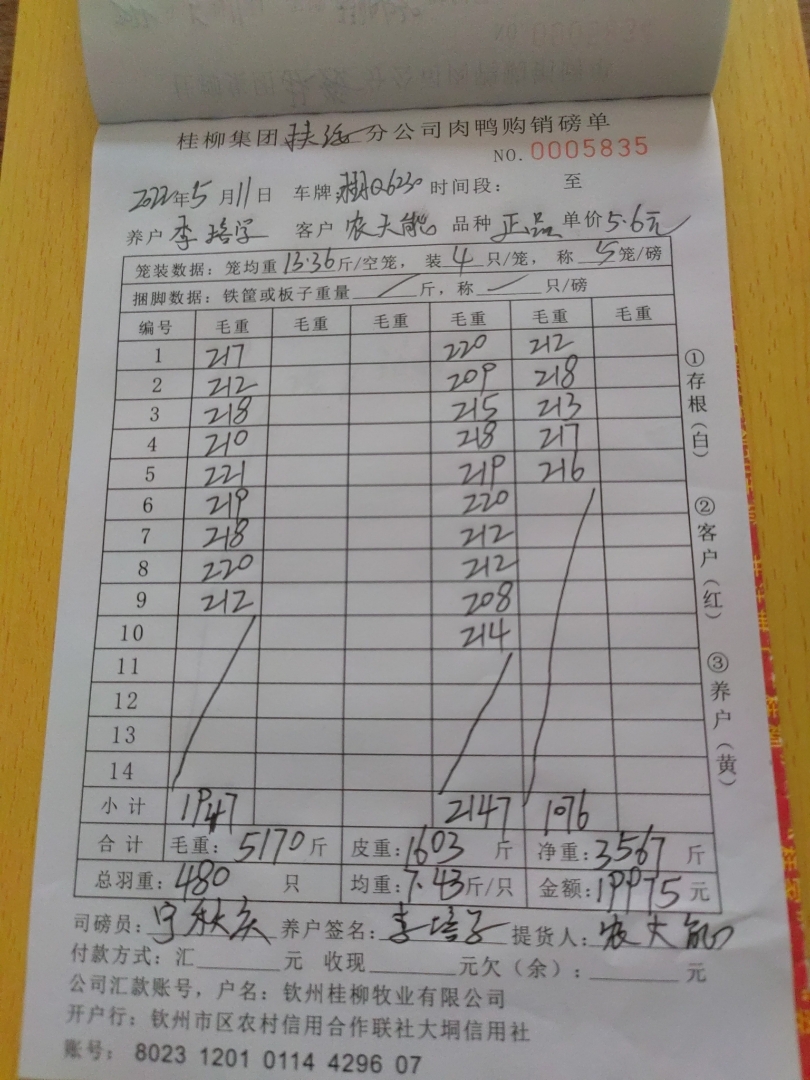 桂柳集团扶绥分公司肉鸭购销磅单
NO. 0005835
2022年5月11日 车牌:湘Q6230 时间段: 至
养户 李培学 客户 农大能 品种 正品 单价5.6元
笼装数据:笼均重13.36斤/空笼, 装4只/笼, 称5笼/磅
捆脚数据:铁筐或板子重量/斤,称/只/磅
编号 毛重 毛重 毛重 毛重 毛重 毛重
1 217 220 212
2 212 209 218
3 218 215 213
4 210 218 217
5 221 219 216
6 219 220
7 218 212
8 220 212
9 212 208
10 214
11
12
13
14
小计 1947 2147 1076
合计 毛重:5170斤 皮重:1603斤 净重:3567斤
总羽重:480只 均重:7.43斤/只 金额:19975元
司磅员: 养户签名:李培学 提货人:农大能
付款方式:汇 元 收现 元欠(余): 元
公司汇款账号,户名:钦州桂柳牧业有限公司
开户行:钦州市区农村信用合作联社大垌信用社
账号: 8023 1201 0114 4296 07
①存根(白)
②客户(红)
③养户(黄)